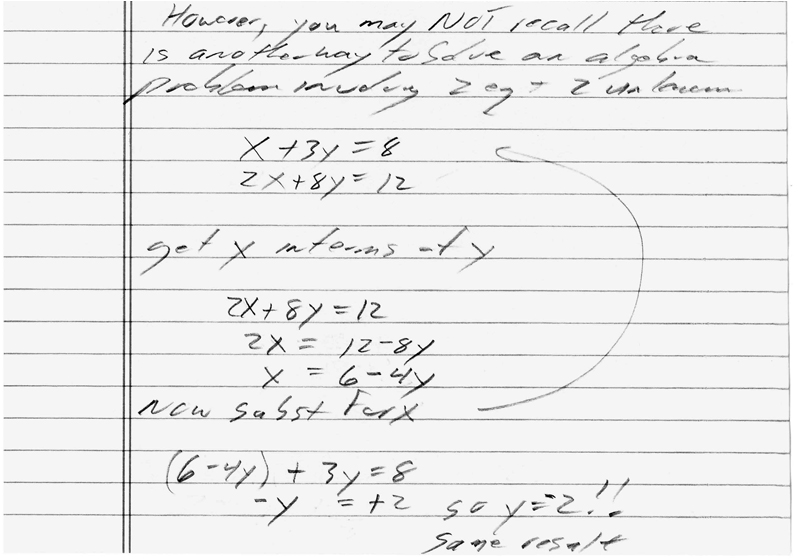 However, you may NOT recall there
is another way to solve an algebra
problem involving 2 eq + 2 unknown
x + 3y = 8
2x + 8y = 12
get x in terms of y
2x + 8y = 12
2x = 12 - 8y
x = 6 - 4y
now subst for x
(6 - 4y) + 3y = 8
-y = +2 so y = -2 !!
same result